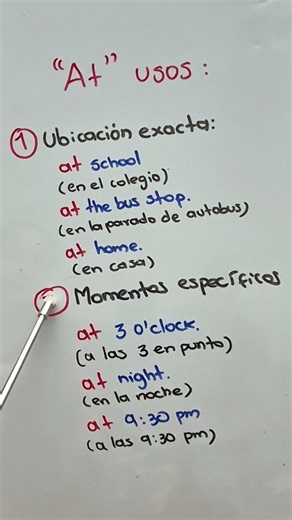 "At" usos:
① Ubicación exacta:
at school
(en el colegio)
at the bus stop.
(en la parado de autobus)
at home.
(en casa)
② Momentos específicos
at 3 o'clock.
(a las 3 en punto)
at night.
(en la noche)
at 9:30 pm
(a las 9:30 pm)